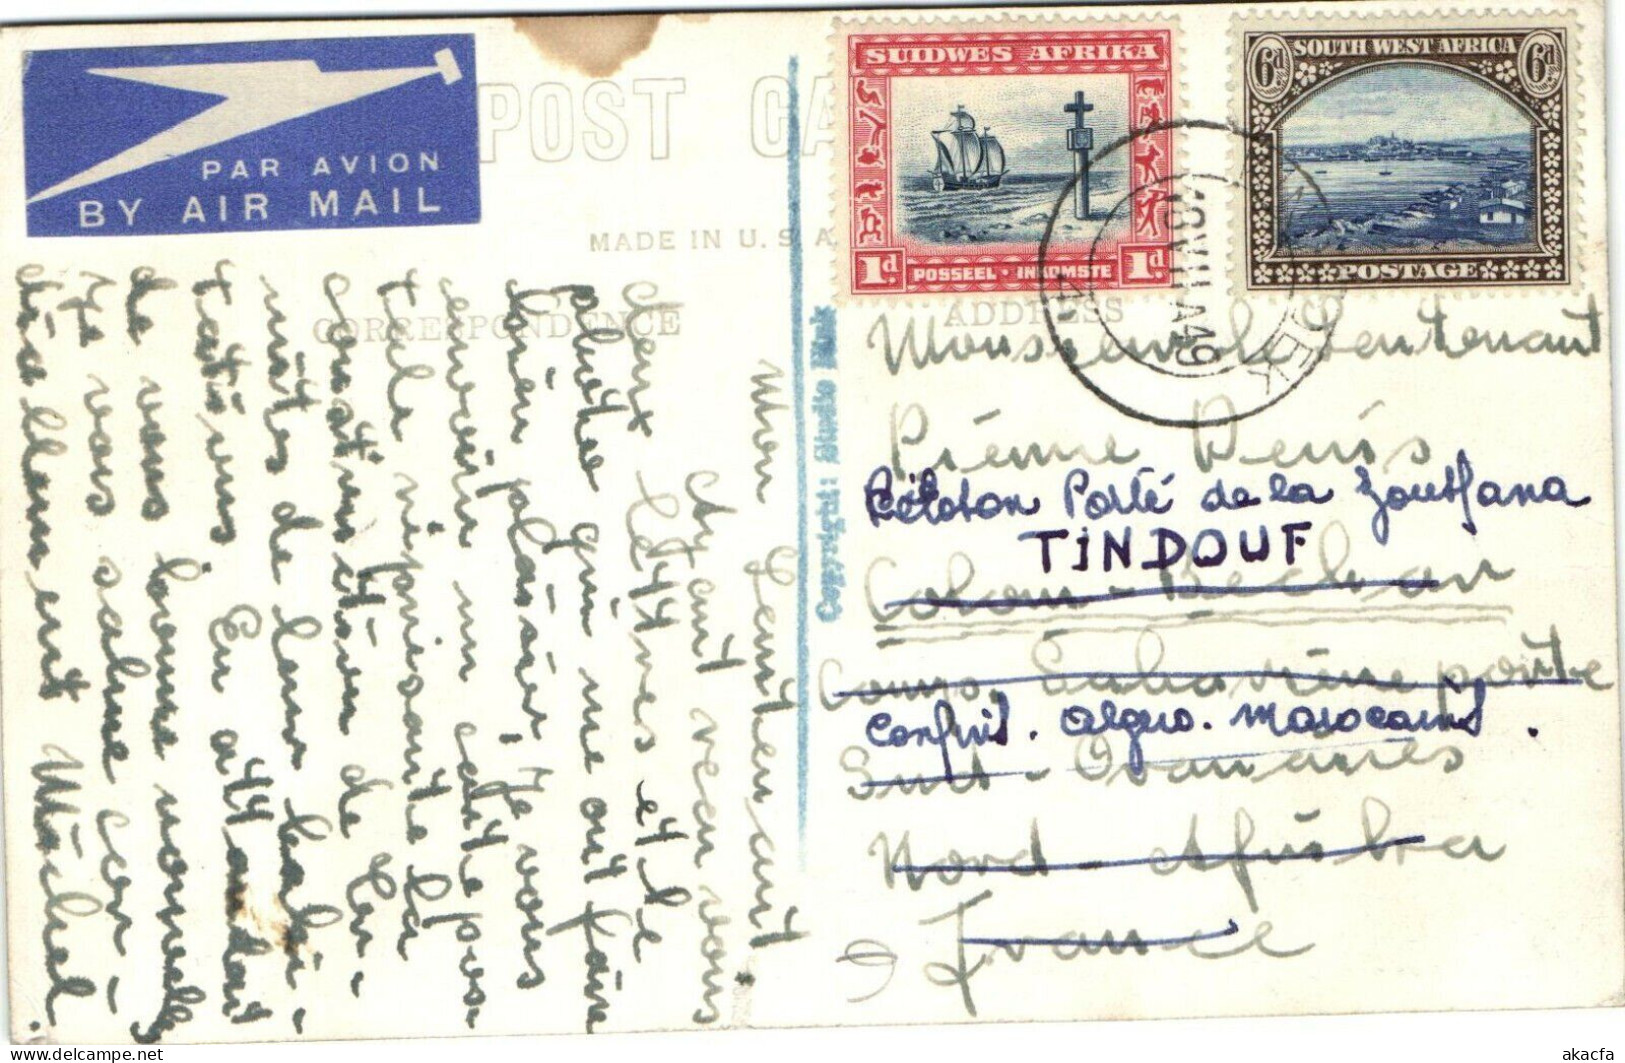 PAR AVION
BY AIR MAIL
POST CA
MADE IN U.S.A
CORRESPONDENCE
ADDRESS
SUIDWES AFRIKA
1d 1d.
POSSEEL · INKOMSTE
SOUTH WEST AFRICA
6d. 6d.
POSTAGE
Copyright: Studio
Mon Lieutenant.
Ayant recu vous
deux lettres et le
photo qui me ont faire
bien plaisir, Je vous
envoin un carte posa
tale répresante la
constriustion de
mites de leur habi-
tations. En attendant
de vous bonne nouvelle
Je vous salue cor-
diallement Michel.
Monsieur le Lieutenant
Piérre Denis
Péloton Porté de la Zousfana
TINDOUF
Colom-Bechar
Comp. Saharienne portée
Confins. algéro. marocains.
Sud-Oranaires
Nord-Afrika
France
akacfa